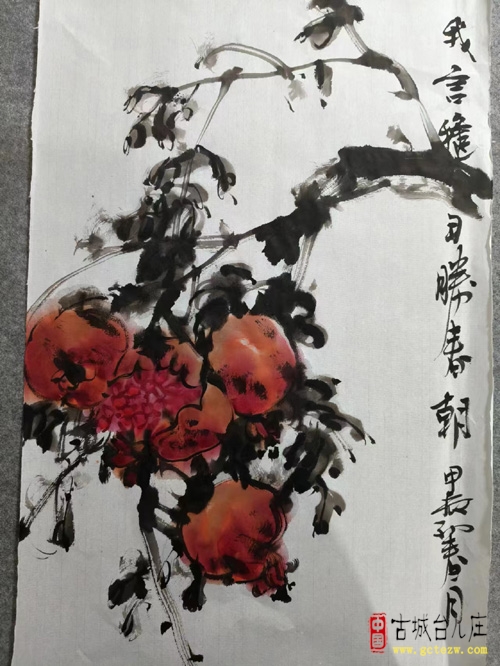 我言穐日勝春朝 甲辰春月
中国
古城台儿庄
www.gctezw.com